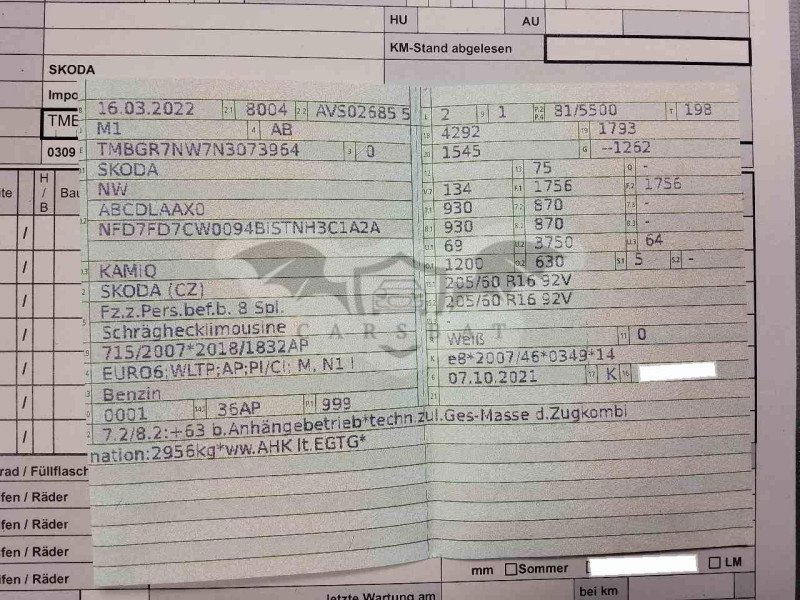 HU
AU
KM-Stand abgelesen
SKODA
Impo
TMB
0309
H / B
Bau
16.03.2022 2.1 8004 2.2 AVS02685 5
M1 4 AB
TMBGR7NW7N3073964 3 0
SKODA
NW
ABCDLAAX0
NFD7FD7CW0094BiSTNH3C1A2A
KAMIQ
SKODA (CZ)
Fz.z.Pers.bef.b. 8 Spl.
Schräghecklimousine
715/2007*2018/1832AP
EURO6;WLTP;AP;PI/CI; M, N1 I
Benzin
0001 36AP P.1 999
2 9 1 P.2 P.4 81/5500 T 198
18 4292 19 1793
20 1545 G --1262
13 75 Q -
V.7 134 F.1 1756 F.2 1756
7.1 930 7.2 870 7.3 -
8.1 930 8.2 870 8.3 -
U.1 69 U.2 3750 U.3 64
O.1 1200 O.2 630 S.1 5 S.2 -
205/60 R16 92V
205/60 R16 92V
Weiß 11 0
K e8*2007/46*0349*14
6 07.10.2021 17 K 16
21
7.2/8.2:+63 b.Anhängebetrieb*techn.zul.Ges-Masse d.Zugkombi
nation:2956kg*ww.AHK lt.EGTG*
CARSBAT
rad / Füllflasch
fen / Räder
fen / Räder
fen / Räder
ifen / Räder
mm Sommer LM
letzte Wartung am
bei km